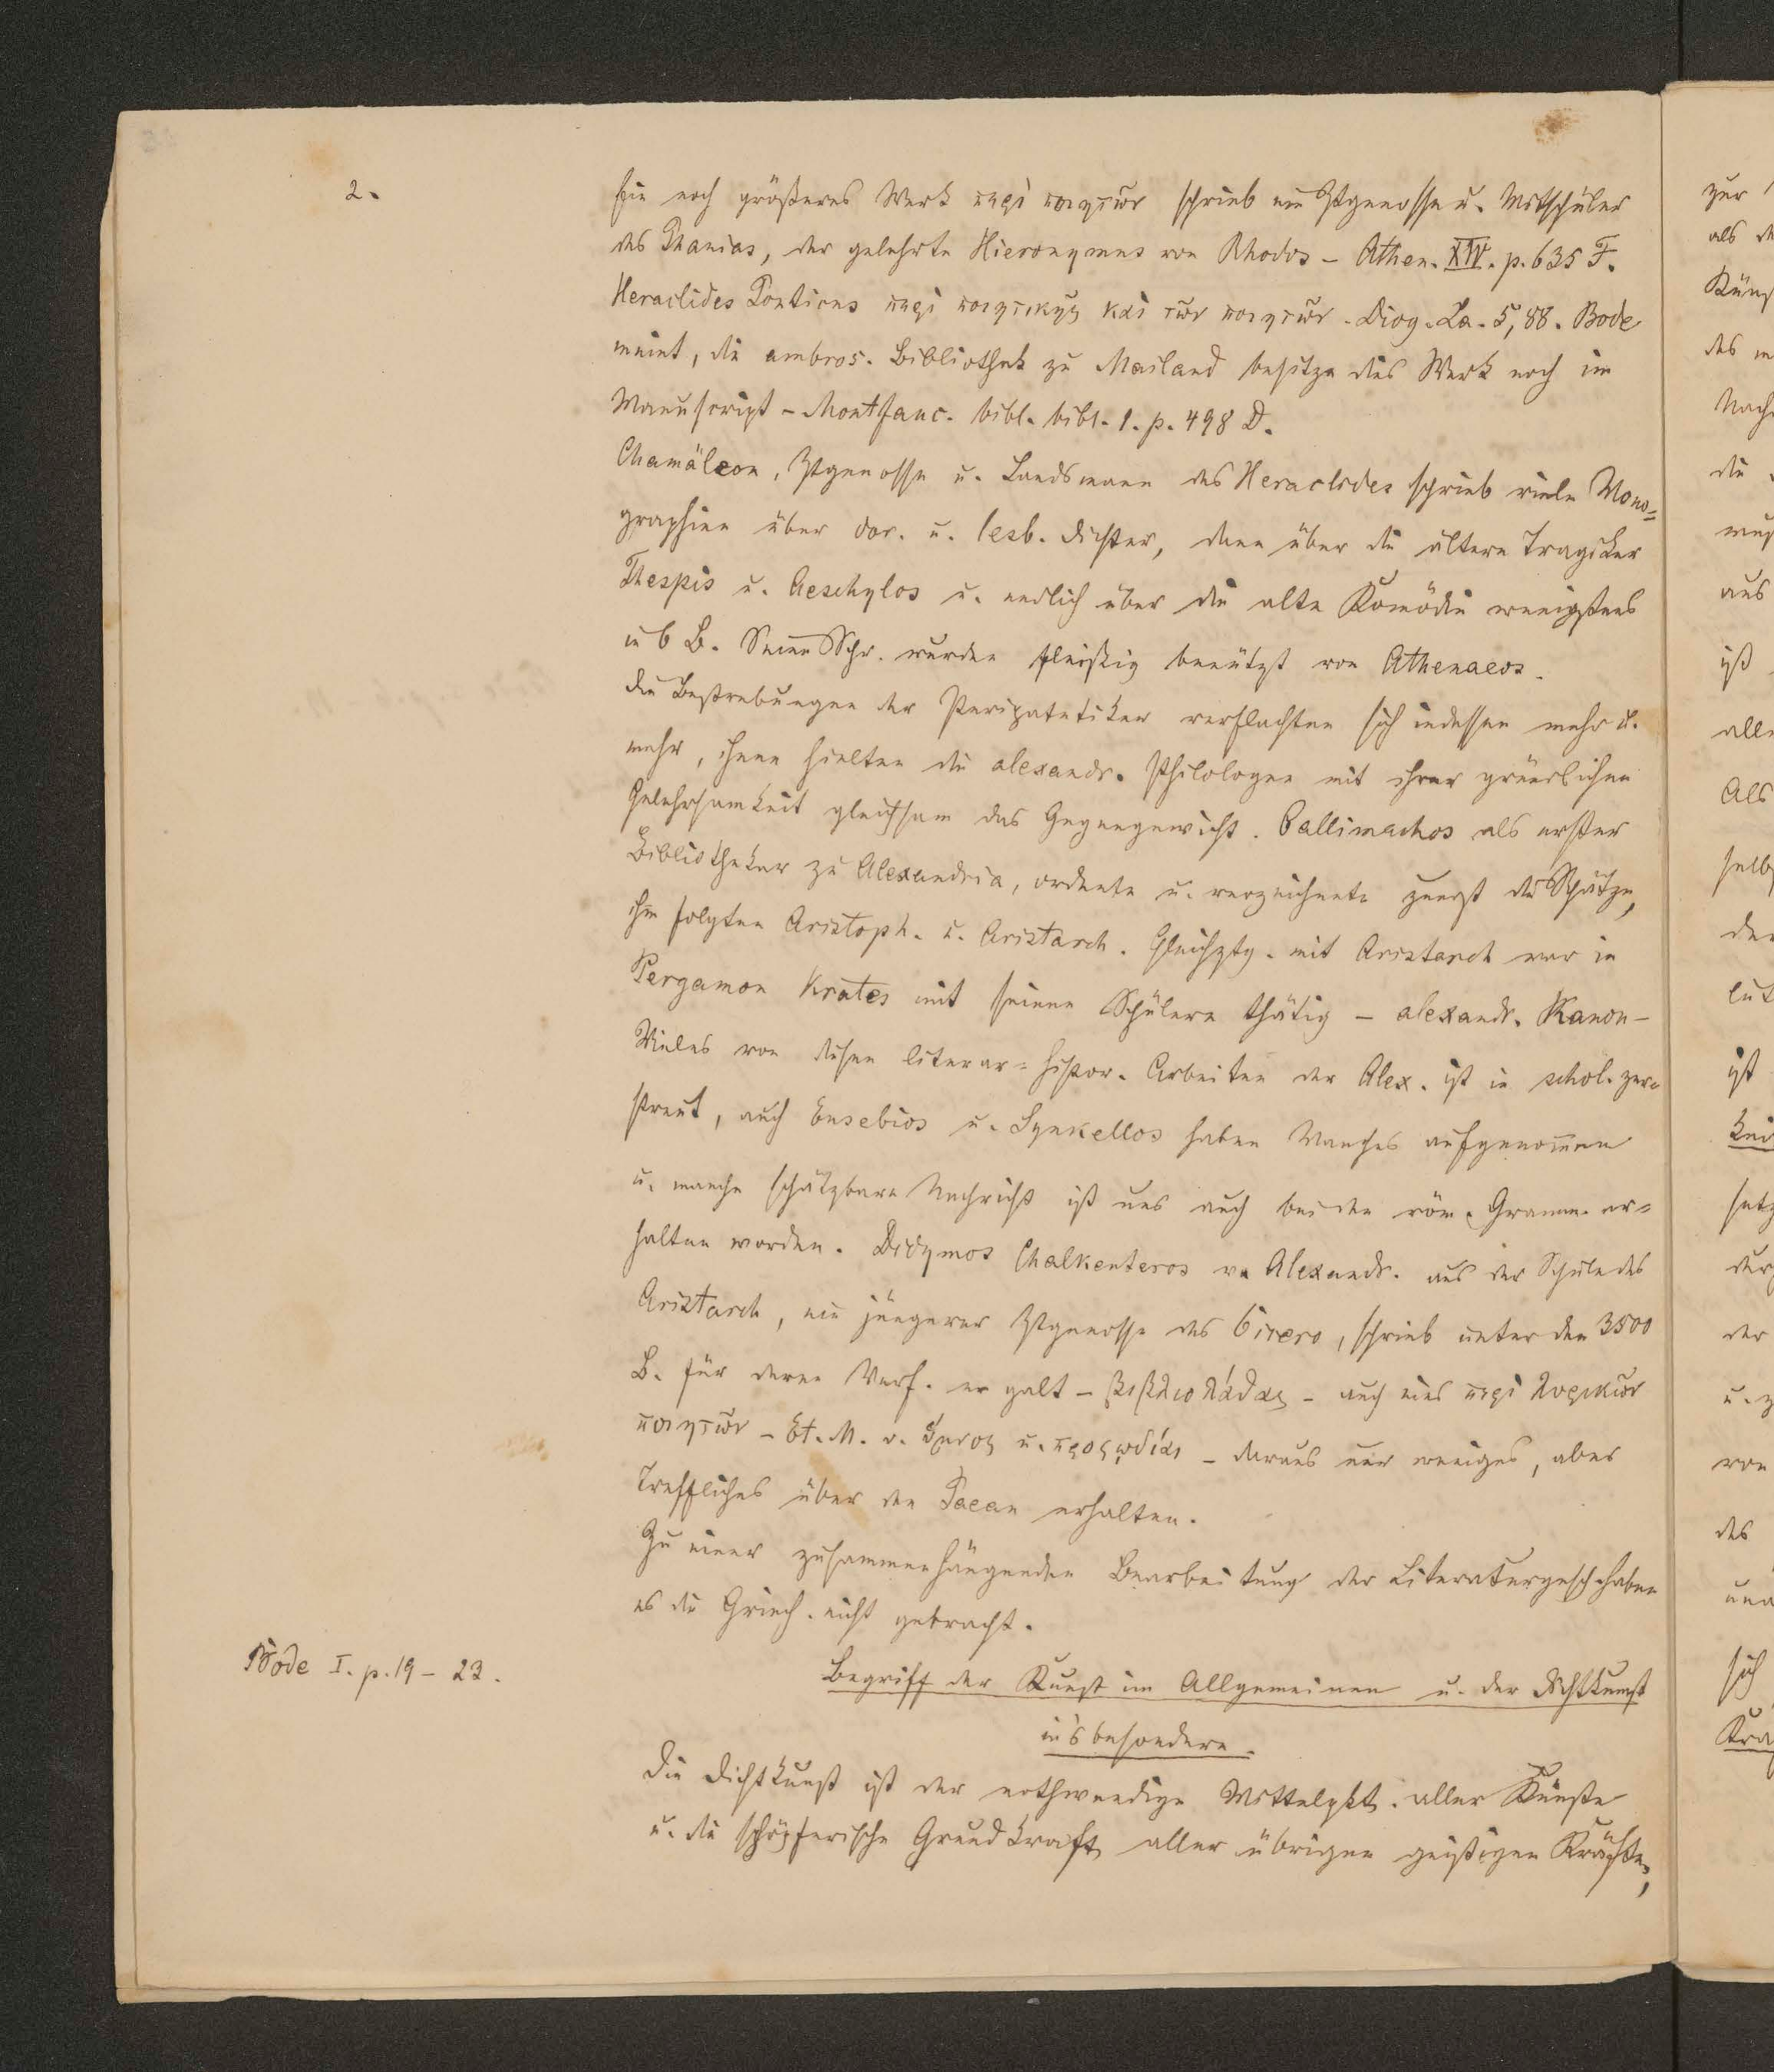 2.
Ein noch größeres Werk περὶ ποιητῶν schrieb ein Ztgenosse u. Mitschüler
des Phanias, der gelehrte Hieronymus von Rhodos – Athen. XIV. p. 635 F.
Heraclides Ponticus περὶ ποιητικῆς καὶ τῶν ποιητῶν – Diog. La. 5, 88. Bode
meint, die ambros. Bibliothek zu Mailand besitze dies Werk noch im
Manuscript – Montfauc. bibl. bibl. 1. p. 498 D.
Chamäleon, Ztgenosse u. Landsmann des Heraclides schrieb viele Mono=
graphien über dor. u. lesb. Dichter, dann über die ältern Tragiker
Thespis u. Aeschylos u. endlich über die alte Komödie wenigstens
in 6 B. Seine Schr. wurden fleißig benützt von Athenaeos.
Die Bestrebungen der Peripatetiker verflachten sich indessen mehr u.
mehr, ihnen hielten die alexandr. Philologen mit ihrer gründlichen
Gelehrsamkeit gleichsam das Gegengewicht. Callimachos als erster
Bibliothekar zu Alexandria, ordnete u. verzeichnete zuerst die Schätze,
ihm folgten Aristoph. u. Aristarch. Gleichztg. mit Aristarch war in
Pergamon Krates mit seinen Schülern thätig – alexandr. Kanon –
Vieles von diesen literar=histor. Arbeiten der Alex. ist in schol. zer=
streut, auch Eusebios u. Synkellos haben Manches aufgenommen
u. manche schätzbare Nachricht ist uns auch bei den röm. Gramm. er=
halten worden. Didymos Chalkenteros v. Alexandr. aus der Schule des
Aristarch, ein jüngerer Ztgenosse des Cicero, schrieb unter den 3500
B. für deren Verf. er galt – βιβλιολάθας – auch eines περὶ λυρικῶν
ποιητῶν – Et. M. v. ὕμνος u. προςῳδίαι – daraus nur weniges, aber
Treffliches über den Paean erhalten.
Zu einer zusammenhängenden Bearbeitung der Literaturgesch. haben
es die Griech. nicht gebracht.
Bode I. p. 19 – 23.
Begriff der Kunst im Allgemeinen u. der Dichtkunst
ins besondere.
Die Dichtkunst ist der nothwendige Mittelpkt. aller Künste
u. die schöpferische Grundkraft aller übrigen geistigen Kräfte,
zur
als
des
die
aus
ist
Als
ist
der
von
des
sich